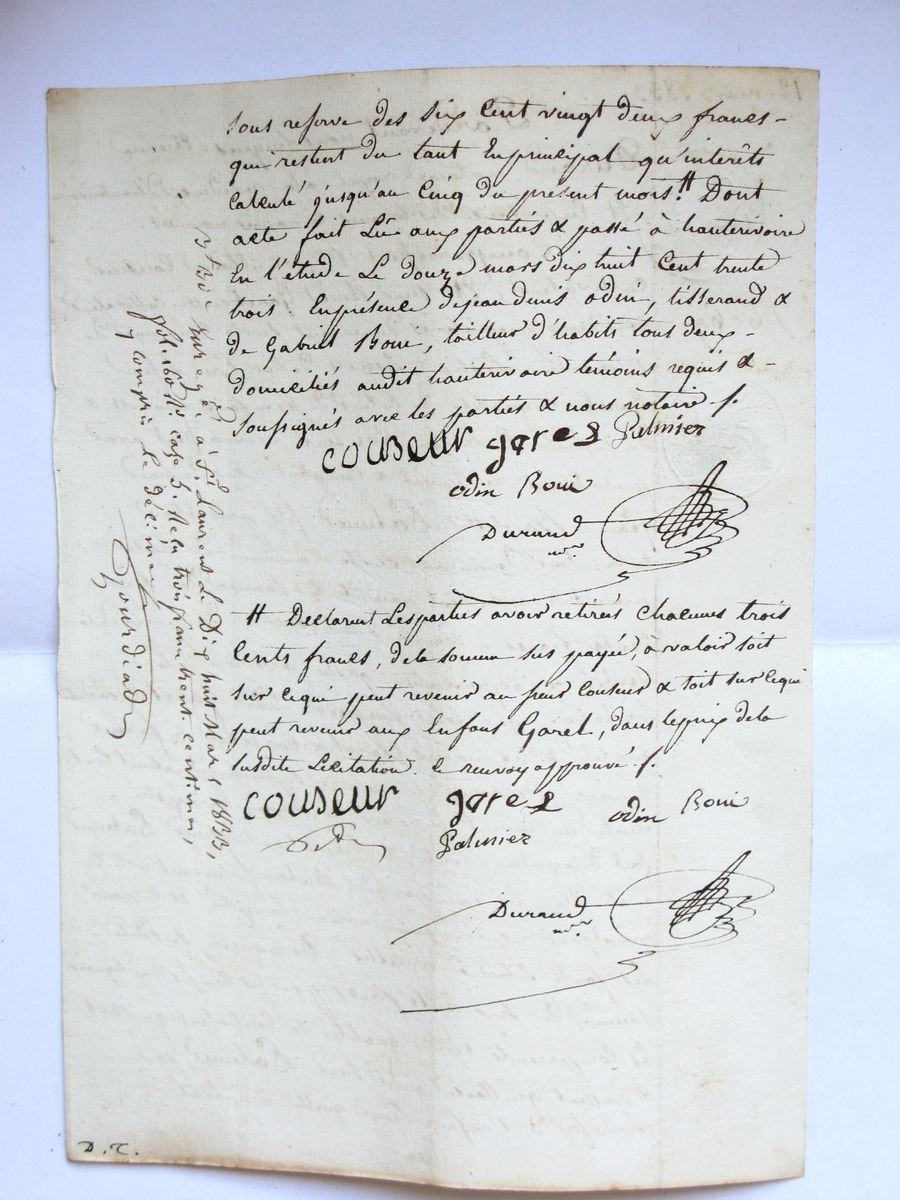 sous reserve des six Cent vingt deux francs -
qui restent du tant En principal qu'interêts
Calculé jusqu'au Cinq du présent mois. # Dont
acte fait Lû aux parties & passé à hauterivoire
En l'étude Le douze mars dix huit Cent trente
trois Enprésence dejean denis odin, tisserand &
de Gabriel Boui, tailleur d'habits tous deux -
domiciliés audit hauterivoire témoins requis & -
soussignés avec les parties & nous notaire ./.
couseur garel Palmier
odin Boui
Durand
nre
# Declarent Lesparties avoir retirés Chacunes trois
Cents francs, dela somme sus payée, à valoir soit
sur cequi peut revenir au sieur Couseur & soit sur cequi
peut revenir aux Enfans Garel, dans leprix dela
susdite Licitation. le renvoy approuvé ./.
couseur garel odin Boui
Palmier
Durand
nre
Enregé. à St. Laurent Le Dix huit Mars 1833,
fol. 160 Vo. Case 5. Reçu trois francs trente centimes,
y compris le décime
D. T.